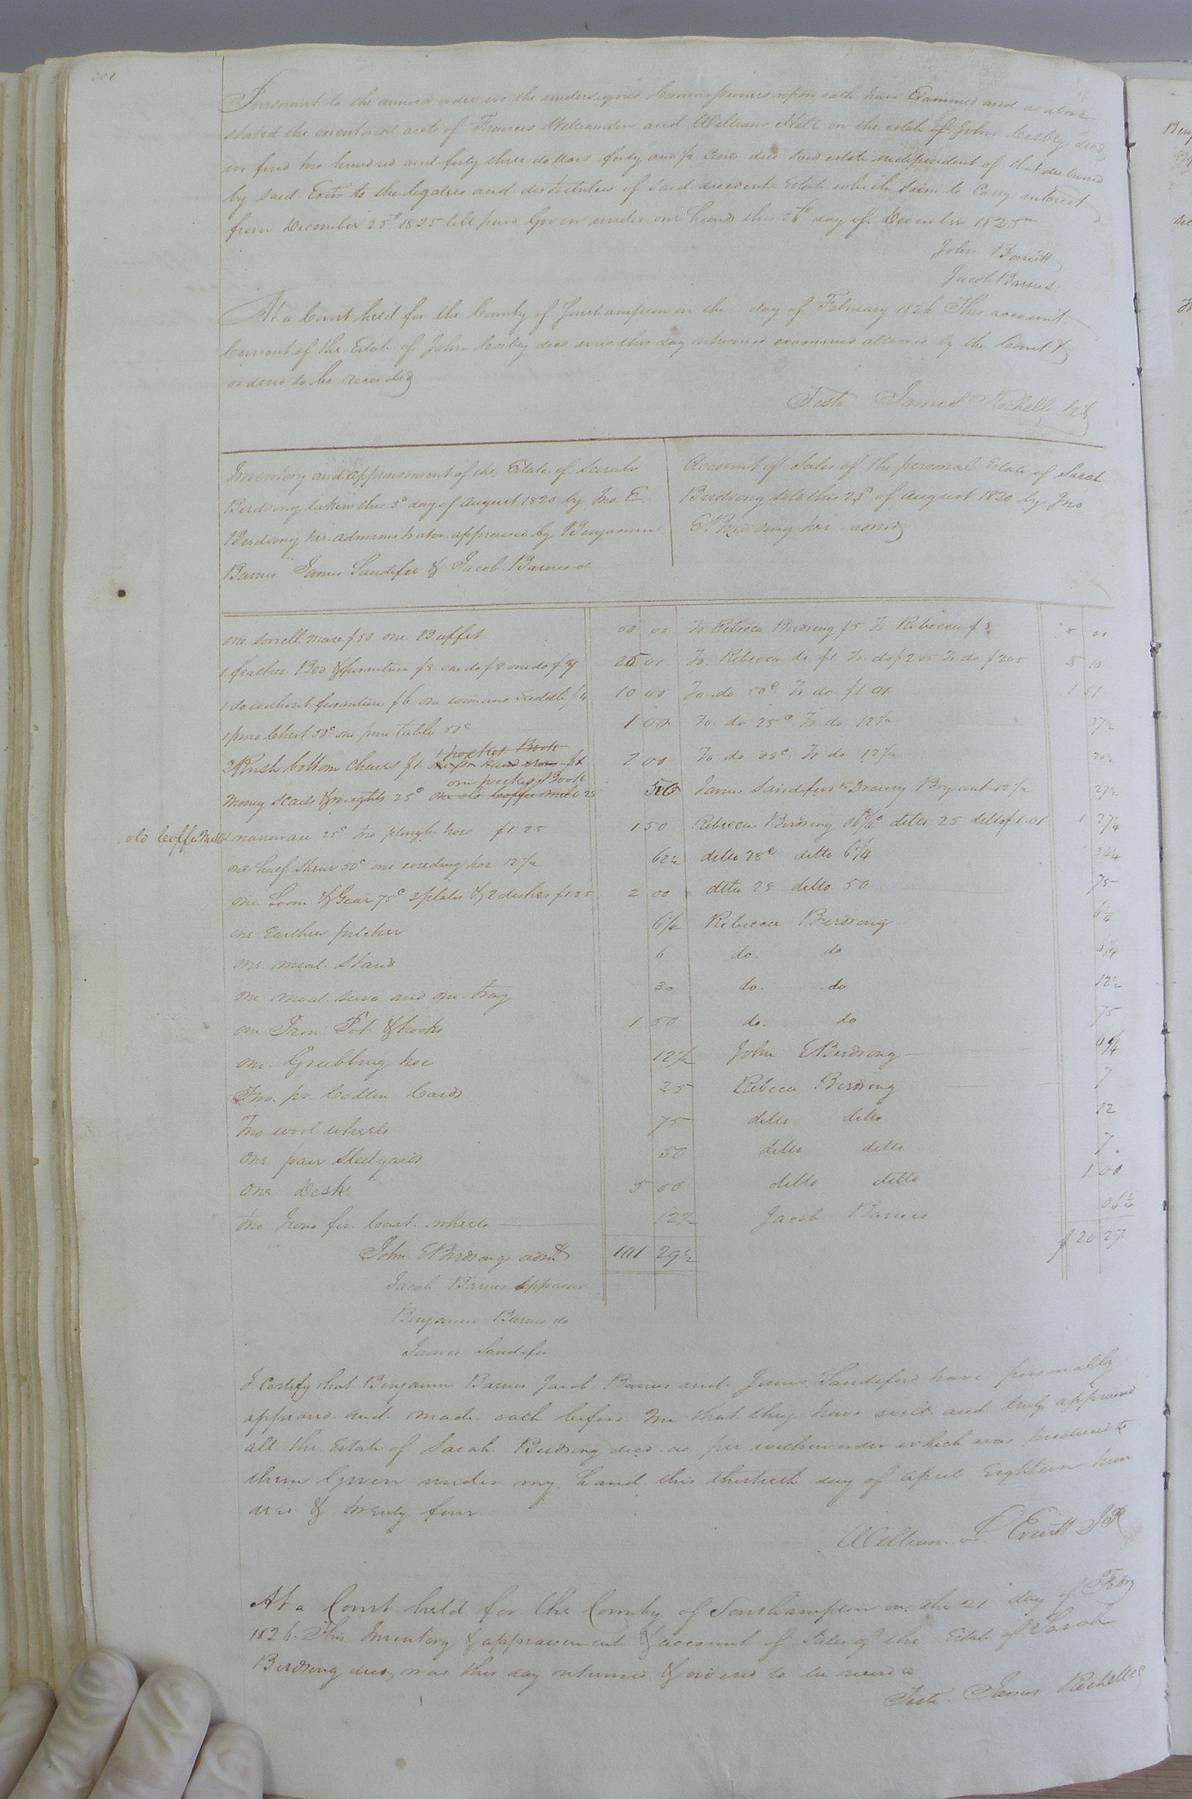 301
Pursuant to the annexed order we the undersigned Commissioners upon oath have Examined and as above
stated the amount acct of Francis Williamson and William Hill on the estate of John Cosby decd
we find two hundred and forty three dollars forty and p Cents due said estate independent of that due
by said Exors to the legatees and distributees of said decedents Estate which seem to Carry interest
from December 25t 1825 till paid Given under our hands this 28t day of December 1825
John Barrett
Jacob Barnes
At a Court held for the County of Southampton on the day of February 1826 This account
Current of the Estate of John Cosby decd was this day returned examined allowed by the Court &
ordered to be recorded
Teste James Rochelle
Inventory and appraisement of the Estate of Sarah
Birdsong taken this 3d day of August 1820 by Jno E
Birdsong her administrator appraised by Benjamin
Barnes James Sandifer & Jacob Barnes
Account of Sales of the personal Estate of Sarah
Birdsong sold this 23d of August 1820 by Jno
E. Birdsong her admr
one sorrell mare $50 one Buffet 00 To Rebecca Birdsong $5 To Rebecca $ 00
1 feather Bed & furniture $8 one do $8 one do $9 25 00 To Rebecca do $1 To do $2 To do 5 10
1 do without furniture $6 one womans saddle $4 10 00 To do 50c To do $1 01
1 pine Chest 50c one pine table 50c 1 00 To do 25c To do 12½ 37½
1 pocket Book
2 Rush bottom Chairs $1 7 00 To do To do 12½
one pocket Book
Money Scales & weights 25c one old Coffee mill 25 50 James Sandifer Drewry Bryant 12½
old Coffee Mill earthenware 25c two plough hoes $1 25 1 50 Rebecca Birdsong ditto 25 ditto $1.01 1
one half Shear 50c one weeding hoe 12½ 62½ ditto 28c ditto 6¼ 34¼
one Loom & Gear 75c 3 plates & 2 dishes $1.25 2 00 ditto 25 ditto 50 75
one Earthen pitcher 6¼ Rebecca Birdsong
one meal Stand 6 do. do
one meal sieve and one tray 30 do. do 12½
one Iron Pot & hooks 1 50 do. do 75
one Grubbing hoe 12½ John E Birdsong 6¼
Two pr. Cotton Cards 25 Rebecca Birdsong 7
Two wool wheels 75 ditto ditto 12
One pair Steelyards 50 ditto ditto 7
One Desk 5 00 ditto ditto 1 00
two Irons for Cart wheels 12½ Jacob Barnes 06¼
John E Birdsong admr 101 29½ $20 27
Jacob Barnes appraiser
Benjamin Barnes do
James Sandifer
I Certify that Benjamin Barnes Jacob Barnes and James Sandiford have personally
appeared and made oath before me that they have well and truly appraised
all the Estate of Sarah Birdsong decd as per within order which was produced to
them Given under my hand this thirtieth day of April Eighteen hun
dred & twenty four
William Everitt JP
At a Court held for the County of Southampton on the 21 day of Feby
1826. This Inventory & appraisement & account of Sales of the Estate of Sarah
Birdsong decd was this day returned & ordered to be recorded
Teste James Rochelle